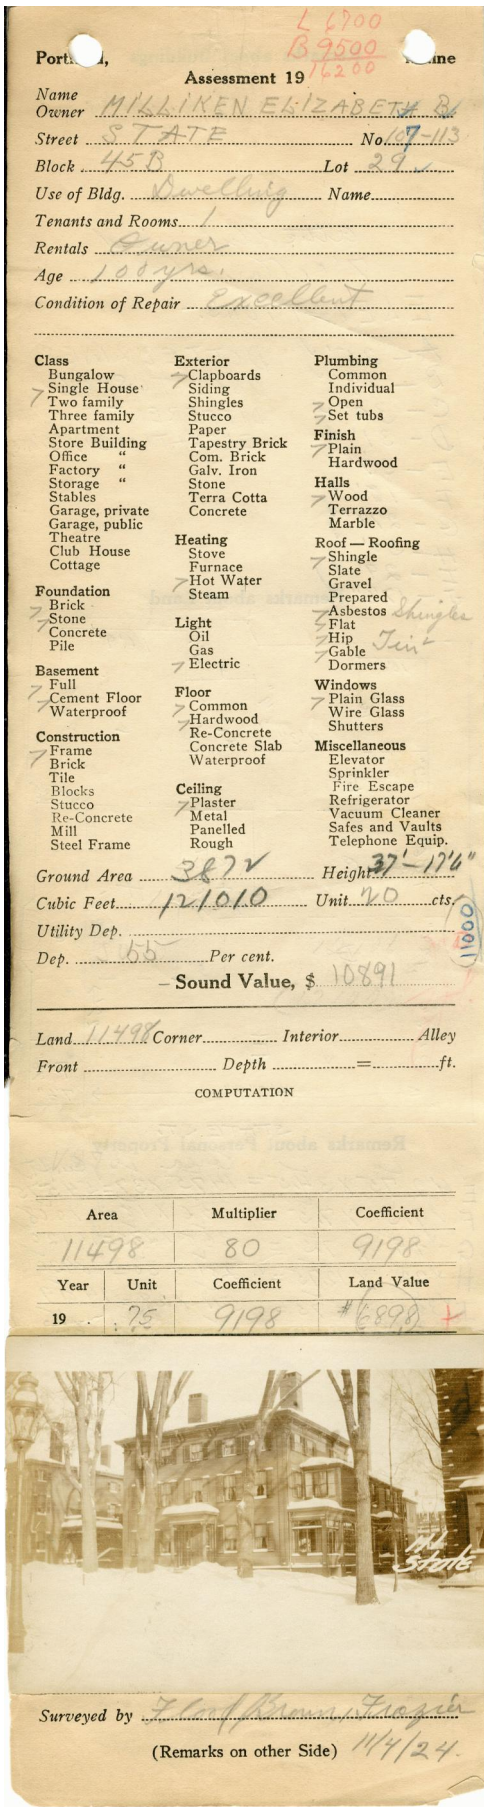 L 6700
B 9500
16200
Port d, Maine
Assessment 19
Name
Owner MILLIKEN ELIZABETH B
Street STATE No. 107-113
Block 45B Lot 29
Use of Bldg. Dwelling Name
Tenants and Rooms 1
Rentals Owner
Age 100 yrs.
Condition of Repair Excellent
Class
Bungalow
Single House
Two family
Three family
Apartment
Store Building
Office "
Factory "
Storage "
Stables
Garage, private
Garage, public
Theatre
Club House
Cottage
Foundation
Brick
Stone
Concrete
Pile
Basement
Full
Cement Floor
Waterproof
Construction
Frame
Brick
Tile
Blocks
Stucco
Re-Concrete
Mill
Steel Frame
Exterior
Clapboards
Siding
Shingles
Stucco
Paper
Tapestry Brick
Com. Brick
Galv. Iron
Stone
Terra Cotta
Concrete
Heating
Stove
Furnace
Hot Water
Steam
Light
Oil
Gas
Electric
Floor
Common
Hardwood
Re-Concrete
Concrete Slab
Waterproof
Ceiling
Plaster
Metal
Panelled
Rough
Plumbing
Common
Individual
Open
Set tubs
Finish
Plain
Hardwood
Halls
Wood
Terrazzo
Marble
Roof — Roofing
Shingle
Slate
Gravel
Prepared
Asbestos Shingles
Flat
Hip Tin
Gable
Dormers
Windows
Plain Glass
Wire Glass
Shutters
Miscellaneous
Elevator
Sprinkler
Fire Escape
Refrigerator
Vacuum Cleaner
Safes and Vaults
Telephone Equip.
Ground Area 3872 Height 37'-17'6"
Cubic Feet 121010 Unit 20 cts.
11000
Utility Dep.
Dep. 55 Per cent.
Sound Value, $ 10891
Land 11498 Corner Interior Alley
Front Depth = ft.
COMPUTATION
Area Multiplier Coefficient
11498 80 9198
Year Unit Coefficient Land Value
19 .75 9198 $6898 +
State
Surveyed by Flood, Brown, Frazier
(Remarks on other Side) 11/4/24.